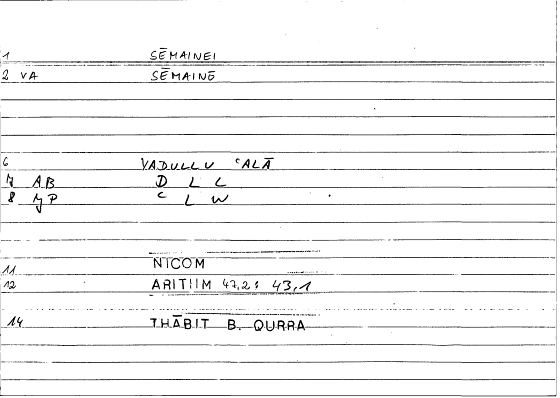 1 SĒMAINEI
2 VA SĒMAINŌ
6 YADULLU ʿALĀ
7 AB D L L
8 YP ʿ L W
11 NICOM
12 ARITHM 42,2; 43,1
14 THĀBIT B. QURRA